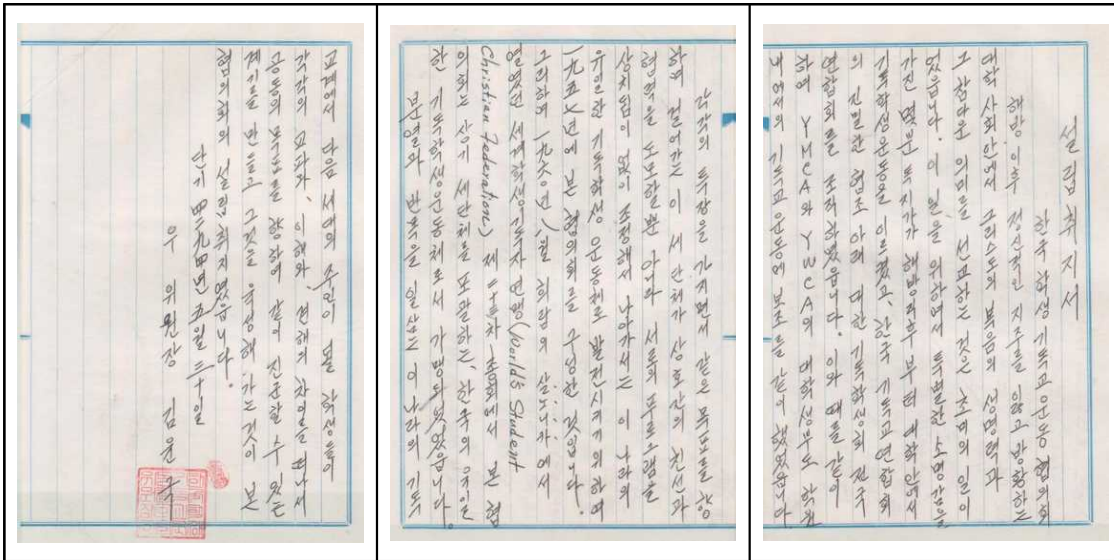 설립취지서
한국 학생 기독교 운동 협의회
해방 이후 정신적인 지주를 잃고 방황하는
대학 사회안에서 그리스도의 복음의 생명력과
그 참다운 의미를 선교하는 것은 초미의 일이
었읍니다. 이 일을 위하여서 특별한 소명감을
가진 몇몇 동지가 해방직후부터 대학안에서
기독학생운동을 이르켰고, 한국 기독교연합회
의 긴밀한 협조 아래 대한 기독학생회 전국
연합회를 조직하였읍니다. 이와 때를 같이
하여 YMCA와 YWCA의 대학생부도 학원
내에서의 기독교운동에 보조를 같이 했었읍니다
각각의 특장을 가지면서 같은 목표를 향
하여 걸어가는 이 세 단체가 상호간의 친선과
협력을 도모할뿐 아니라 서로의 푸로그램을
상치됨이 없이 조정해서 나아가서는 이 나라의
유일한 기독학생 운동체로 발전시키기 위하여
一九五七년에 본 협의회를 구성한 것입니다.
그리하여 一九六0년 八월 희랍의 살로니카에서
열렸던 세계학생기독자 연맹(World's Student
Christian Federation) 제 총회에서 본 협
의회는 상기 세단체를 포괄하는, 한국의 유일
한 기독학생운동체로서 가맹되었었읍니다.
분열과 반목을 일삼는 이 나라의 기독
교계에서 다음 세대의 주인이 될 학생들이
각각의 교파와, 이해와, 견해의 차이를 떠나서
공동의 목표를 향하여 같이 진군할 수 있는
계기를 만들고 그것을 육성해 가는것이 본
협의회의 설립취지였읍니다.
단기 四二九四년 五월 三十일
우 위원장 김윤국